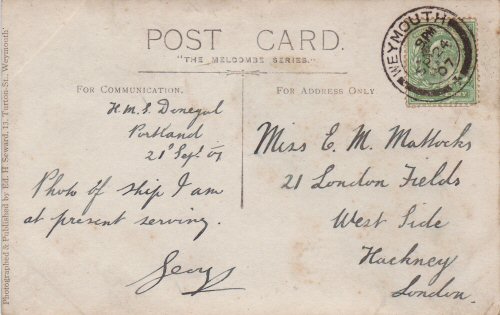 POST CARD.
"THE MELCOMBE SERIES."
FOR COMMUNICATION.
H.M.S. Donegal
Portland
21st Sept 07
Photo of ship I am
at present serving.
Georg
FOR ADDRESS ONLY.
Miss E. M. Mattocks
21 London Fields
West Side
Hackney
London.
WEYMOUTH
SP 24
07
Photographed & Published by Ed. H Seward, 13, Turton St., Weymouth